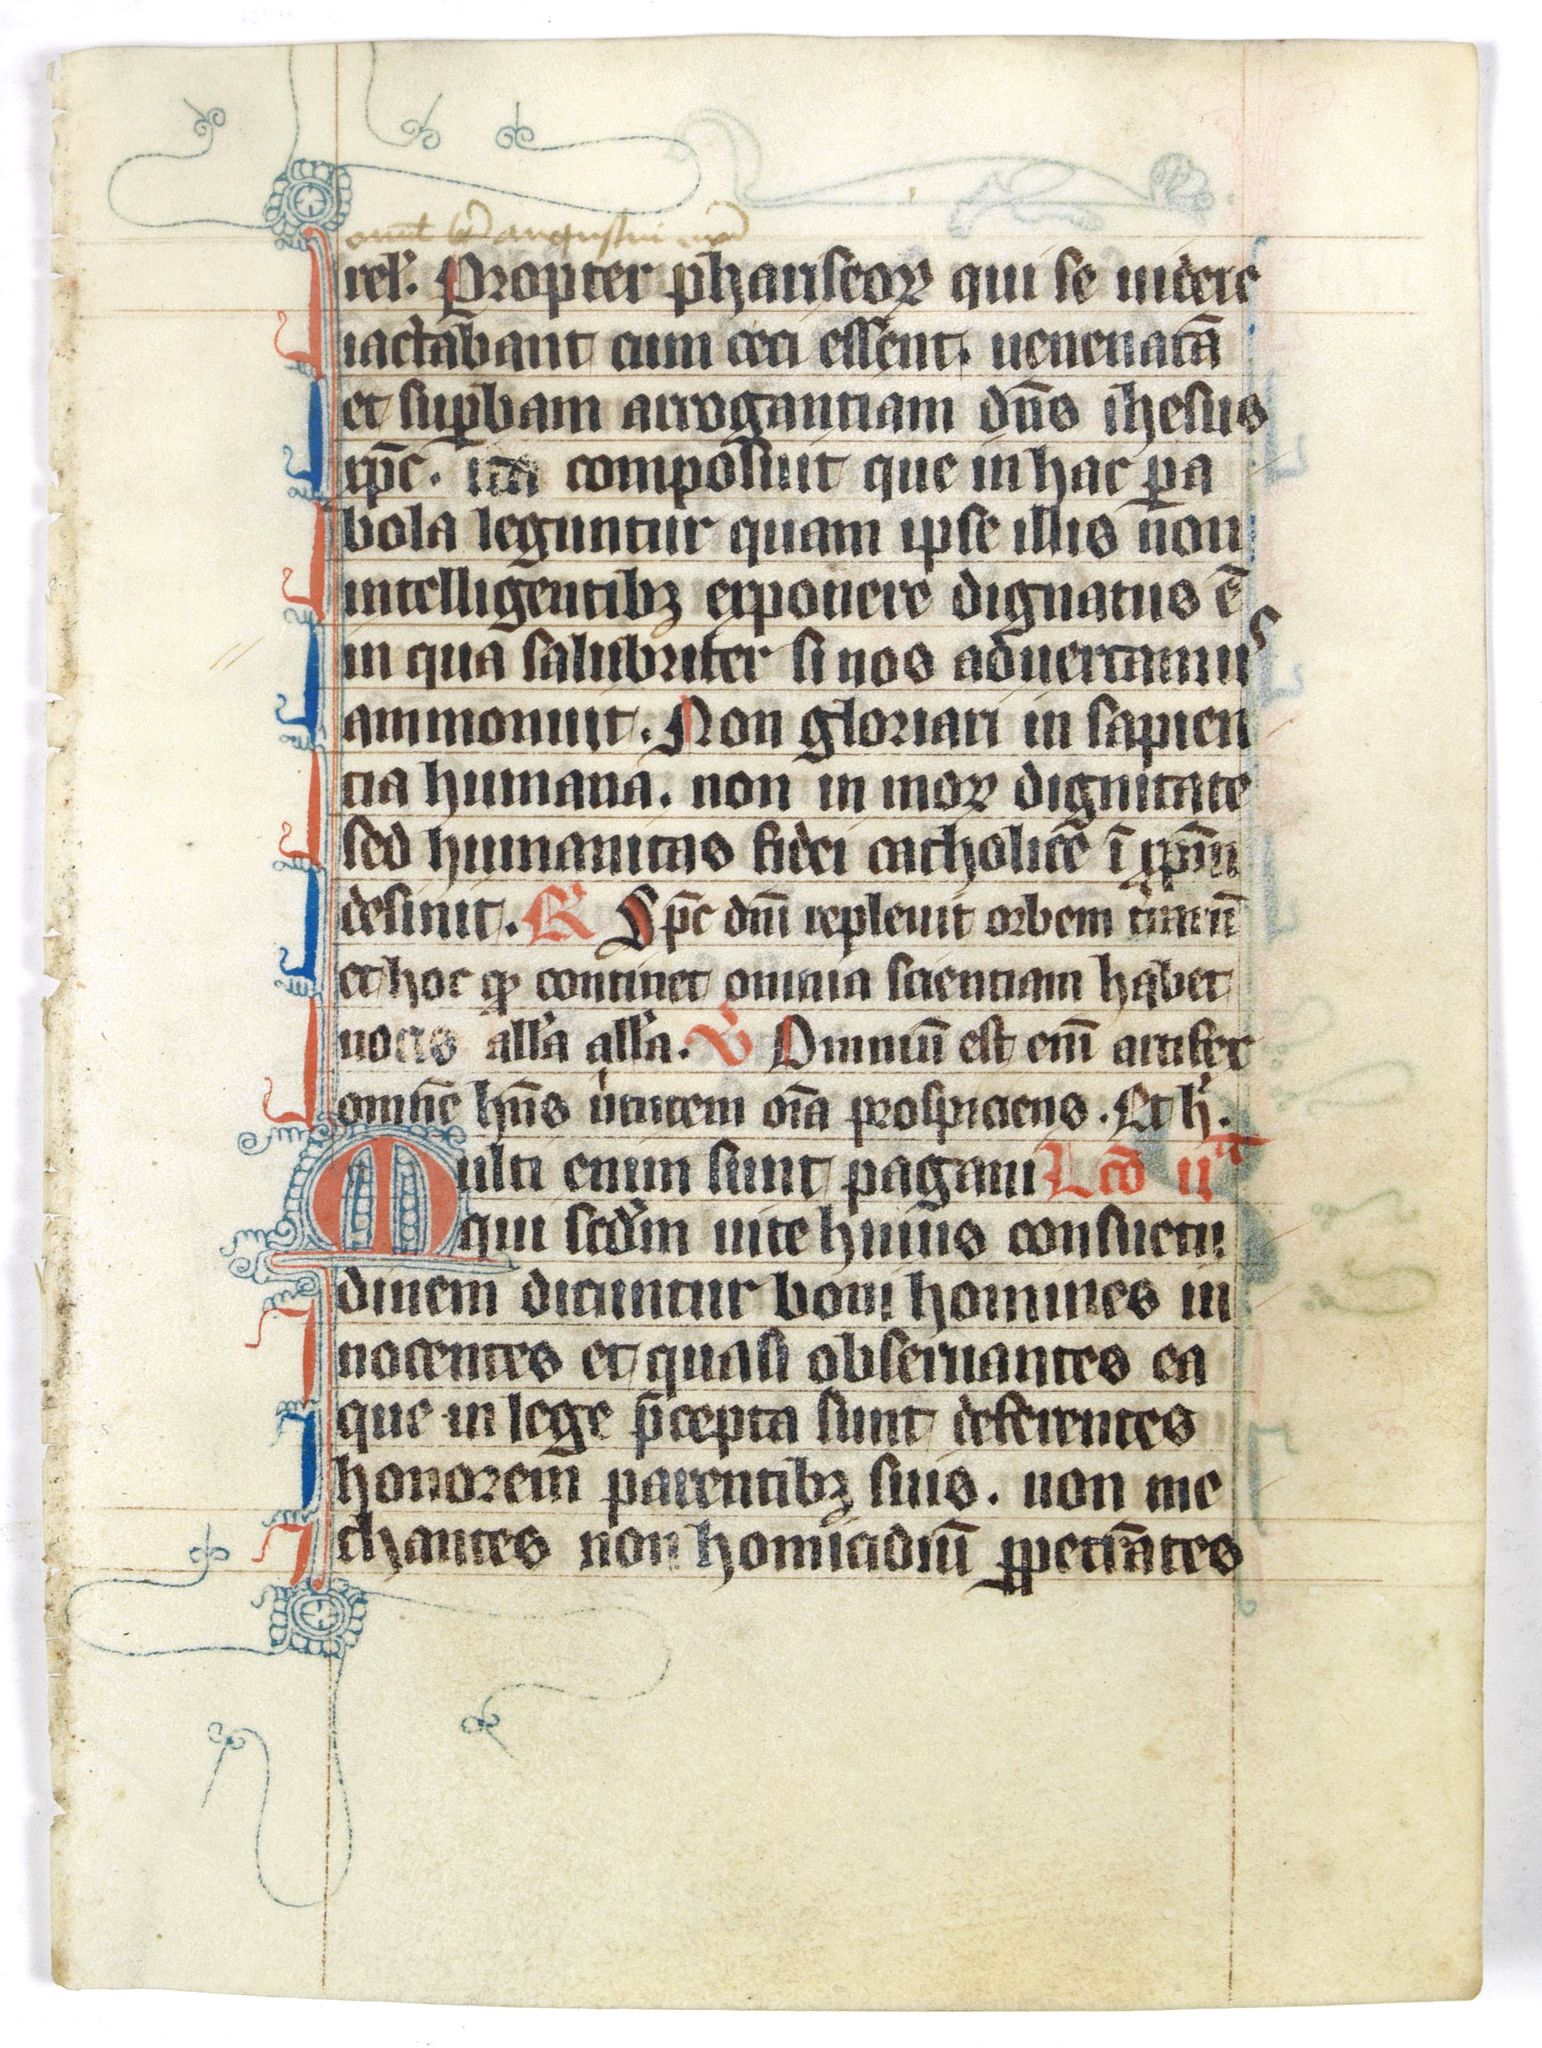 omel' bti augustini
rel'. Propter phariseoꝝ qui se uidere
iactabant cum ceci essent. uenenatā
et suꝑbam arrogantiam dn̄s ihesus
xp̄c. ita composuit que in hac ꝑa
bola leguntur quam ipse illis non
intelligentibꝫ exponere dignatus ē
in qua salubriter si nos aduertamus
ammonuit. Non gloriari in sapien
tia humana. non in moꝝ dignitate
sed humanitas fidei catholice ī xp̄m
desinit. R Sp̄c dn̄i repleuit orbem traꝝ
et hoc qd continet omnia scientiam habet
uocis all'a all'a. V Omniū est enī artifex
omnē hn̄s ūtutem oīa prospiciens. Et h'.
Multi enim sunt pagani Lcō iiᵃ
qui scdm uite huius consuetu
dinem dicuntur boni homines in
nocentes et quasi obseruantes ea
que in lege p̄cepta sunt deferentes
honorem parentibꝫ suis. non me
chantes non homicidiū ꝑpetrātes